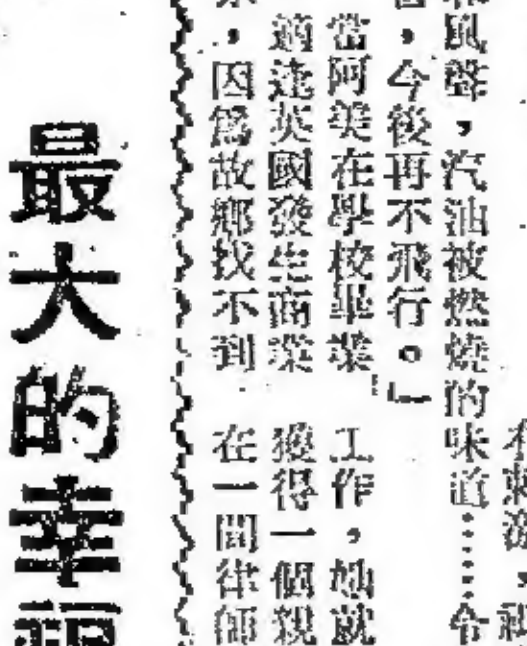 風聲，汽油被燃燒的味道……令
，今後再不飛行。」
當阿美在學校畢業
適逢英國發生商業
，因爲故鄉找不到
工作，她就
獲得一個親
在一間律師
最大的幸